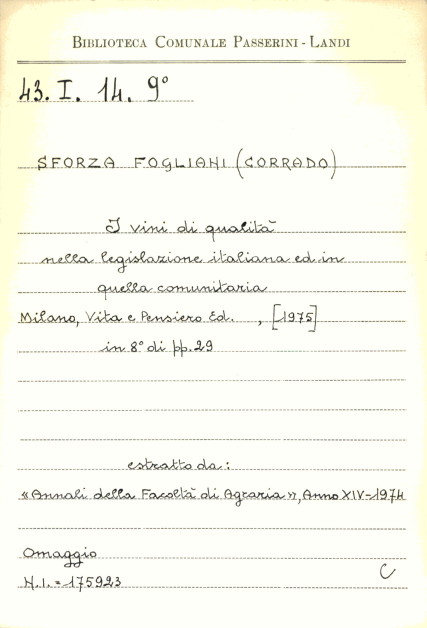 BIBLIOTECA COMUNALE PASSERINI - LANDI
43. I. 14. 9°
SFORZA FOGLIANI (CORRADO)
I vini di qualità
nella legislazione italiana ed in
quella comunitaria
Milano, Vita e Pensiero Ed. , [1975]
in 8° di pp. 29
estratto da:
«Annali della Facoltà di Agraria», Anno XIV-1974
Omaggio
N.I. = 175923
C